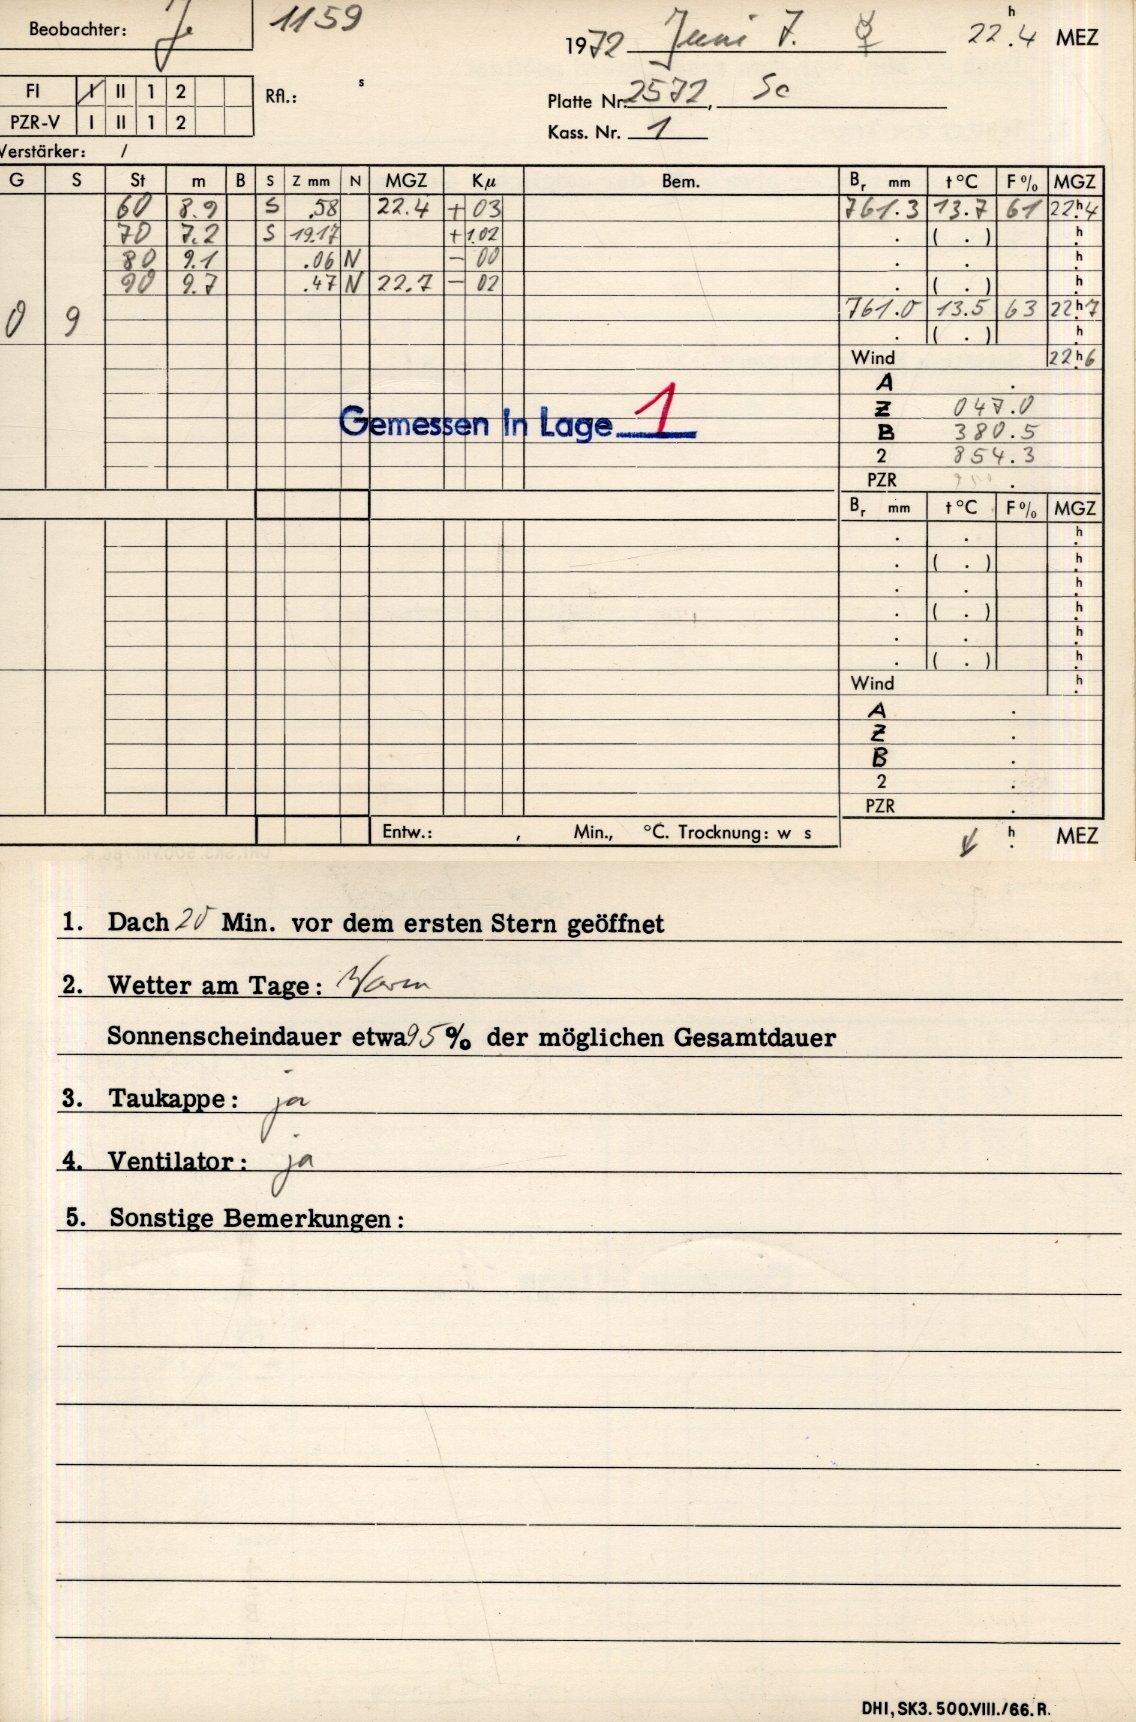 Beobachter: Je 1159
1972 Juni 7. ☿ 22h.4 MEZ
FI I II 1 2 Rfl.: s
Platte Nr. 2572, Sc
PZR-V I II 1 2
Kass. Nr. 1
Verstärker: /
G S St m B S Z mm N MGZ Kµ Bem. Br mm t °C F % MGZ
60 8.9 S .58 22.4 + 03 761.3 13.7 61 22h4
70 7.2 S 19.17 + 1.02 . ( . ) h
80 9.1 .06 N - 00 . . h
90 9.7 .47 N 22.7 - 02 . ( . ) h
0 9 761.0 13.5 63 22h7
. ( . ) h
Wind 22h6
A .
Z 047.0
Gemessen in Lage 1
B 380.5
2 854.3
PZR .
Br mm t °C F % MGZ
. . h
. ( . ) h
. . h
. ( . ) h
. . h
. ( . ) h
Wind h
A .
Z .
B .
2 .
PZR .
Entw.: , Min., °C. Trocknung: w s h MEZ
1. Dach 20 Min. vor dem ersten Stern geöffnet
2. Wetter am Tage: Warm
Sonnenscheindauer etwa 95 % der möglichen Gesamtdauer
3. Taukappe: ja
4. Ventilator: ja
5. Sonstige Bemerkungen:
DHI, SK3. 500.VIII./66. R.